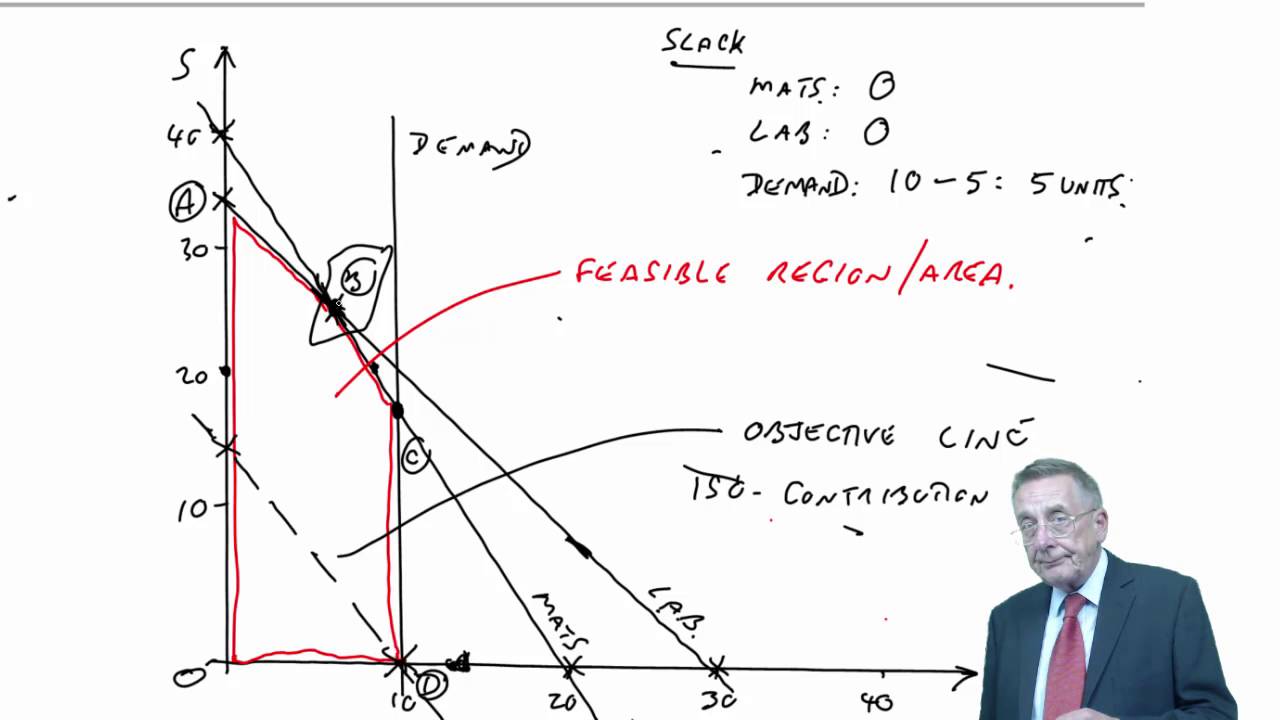 SLACK
MATS: 0
LAB: 0
DEMAND: 10 - 5 = 5 UNITS.
S
40
DEMAND
A
30
B
FEASIBLE REGION/AREA.
20
OBJECTIVE LINE
C
ISO - CONTRIBUTION
10
MATS
LAB.
0
D
10
20
30
40